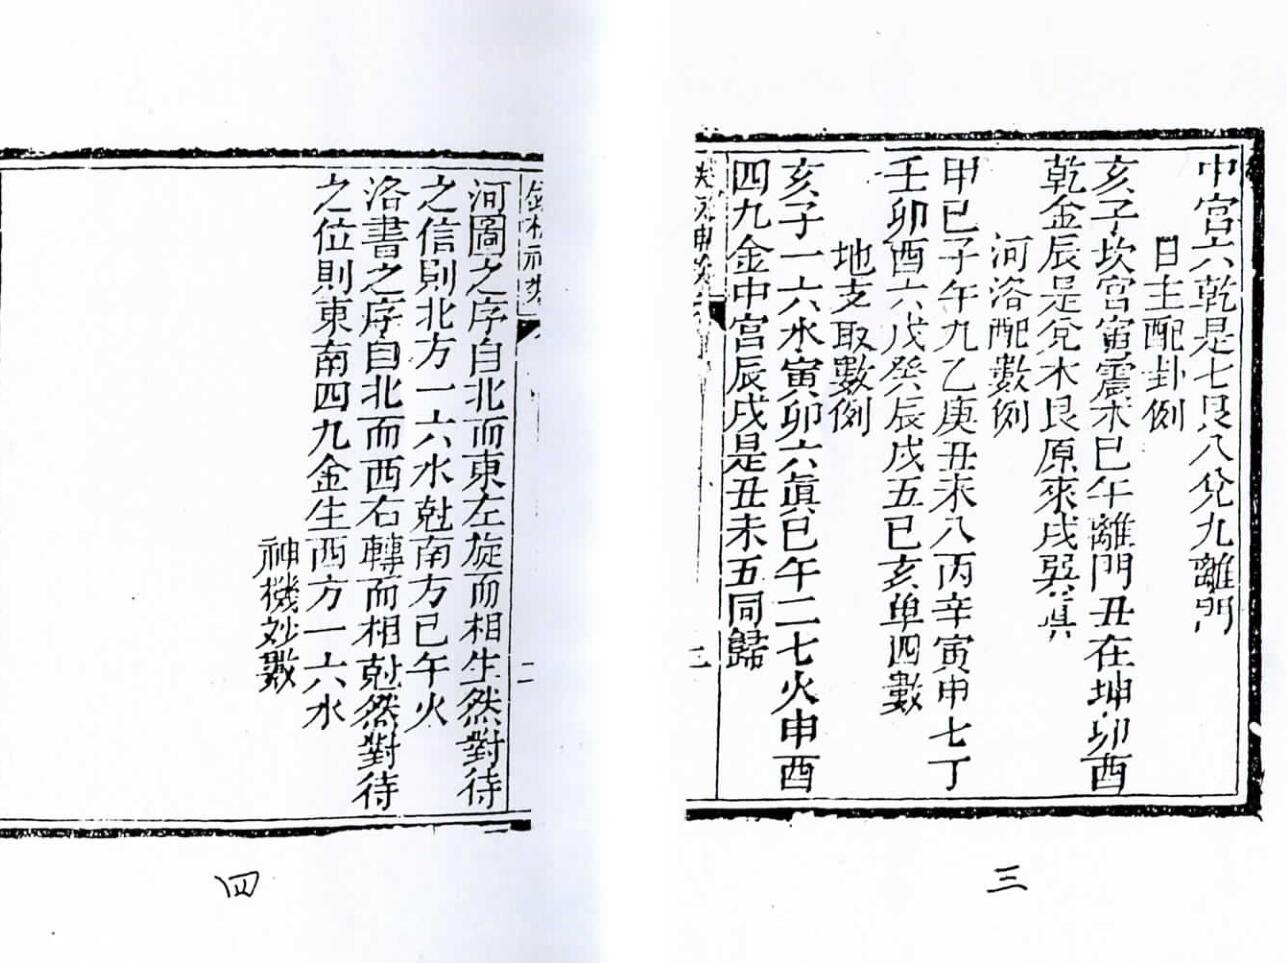 中宮六乾是七艮八兌九離門
日主配卦例
亥子坎宮寅震木巳午離門丑在坤卯酉
乾金辰是兌木艮原來戌巽眞
河洛配數例
甲己子午九乙庚丑未八丙辛寅申七丁
壬卯酉六戊癸辰戌五巳亥單四數
地支取數例
亥子一六水寅卯六眞巳午二七火申酉
四九金中宮辰戌是丑未五同歸
三
河圖之序自北而東左旋而相生然對待
之信則北方一六水尅南方巳午火
洛書之序自北而西右轉而相尅然對待
之位則東南四九金生西方一六水
神機妙數
二
四